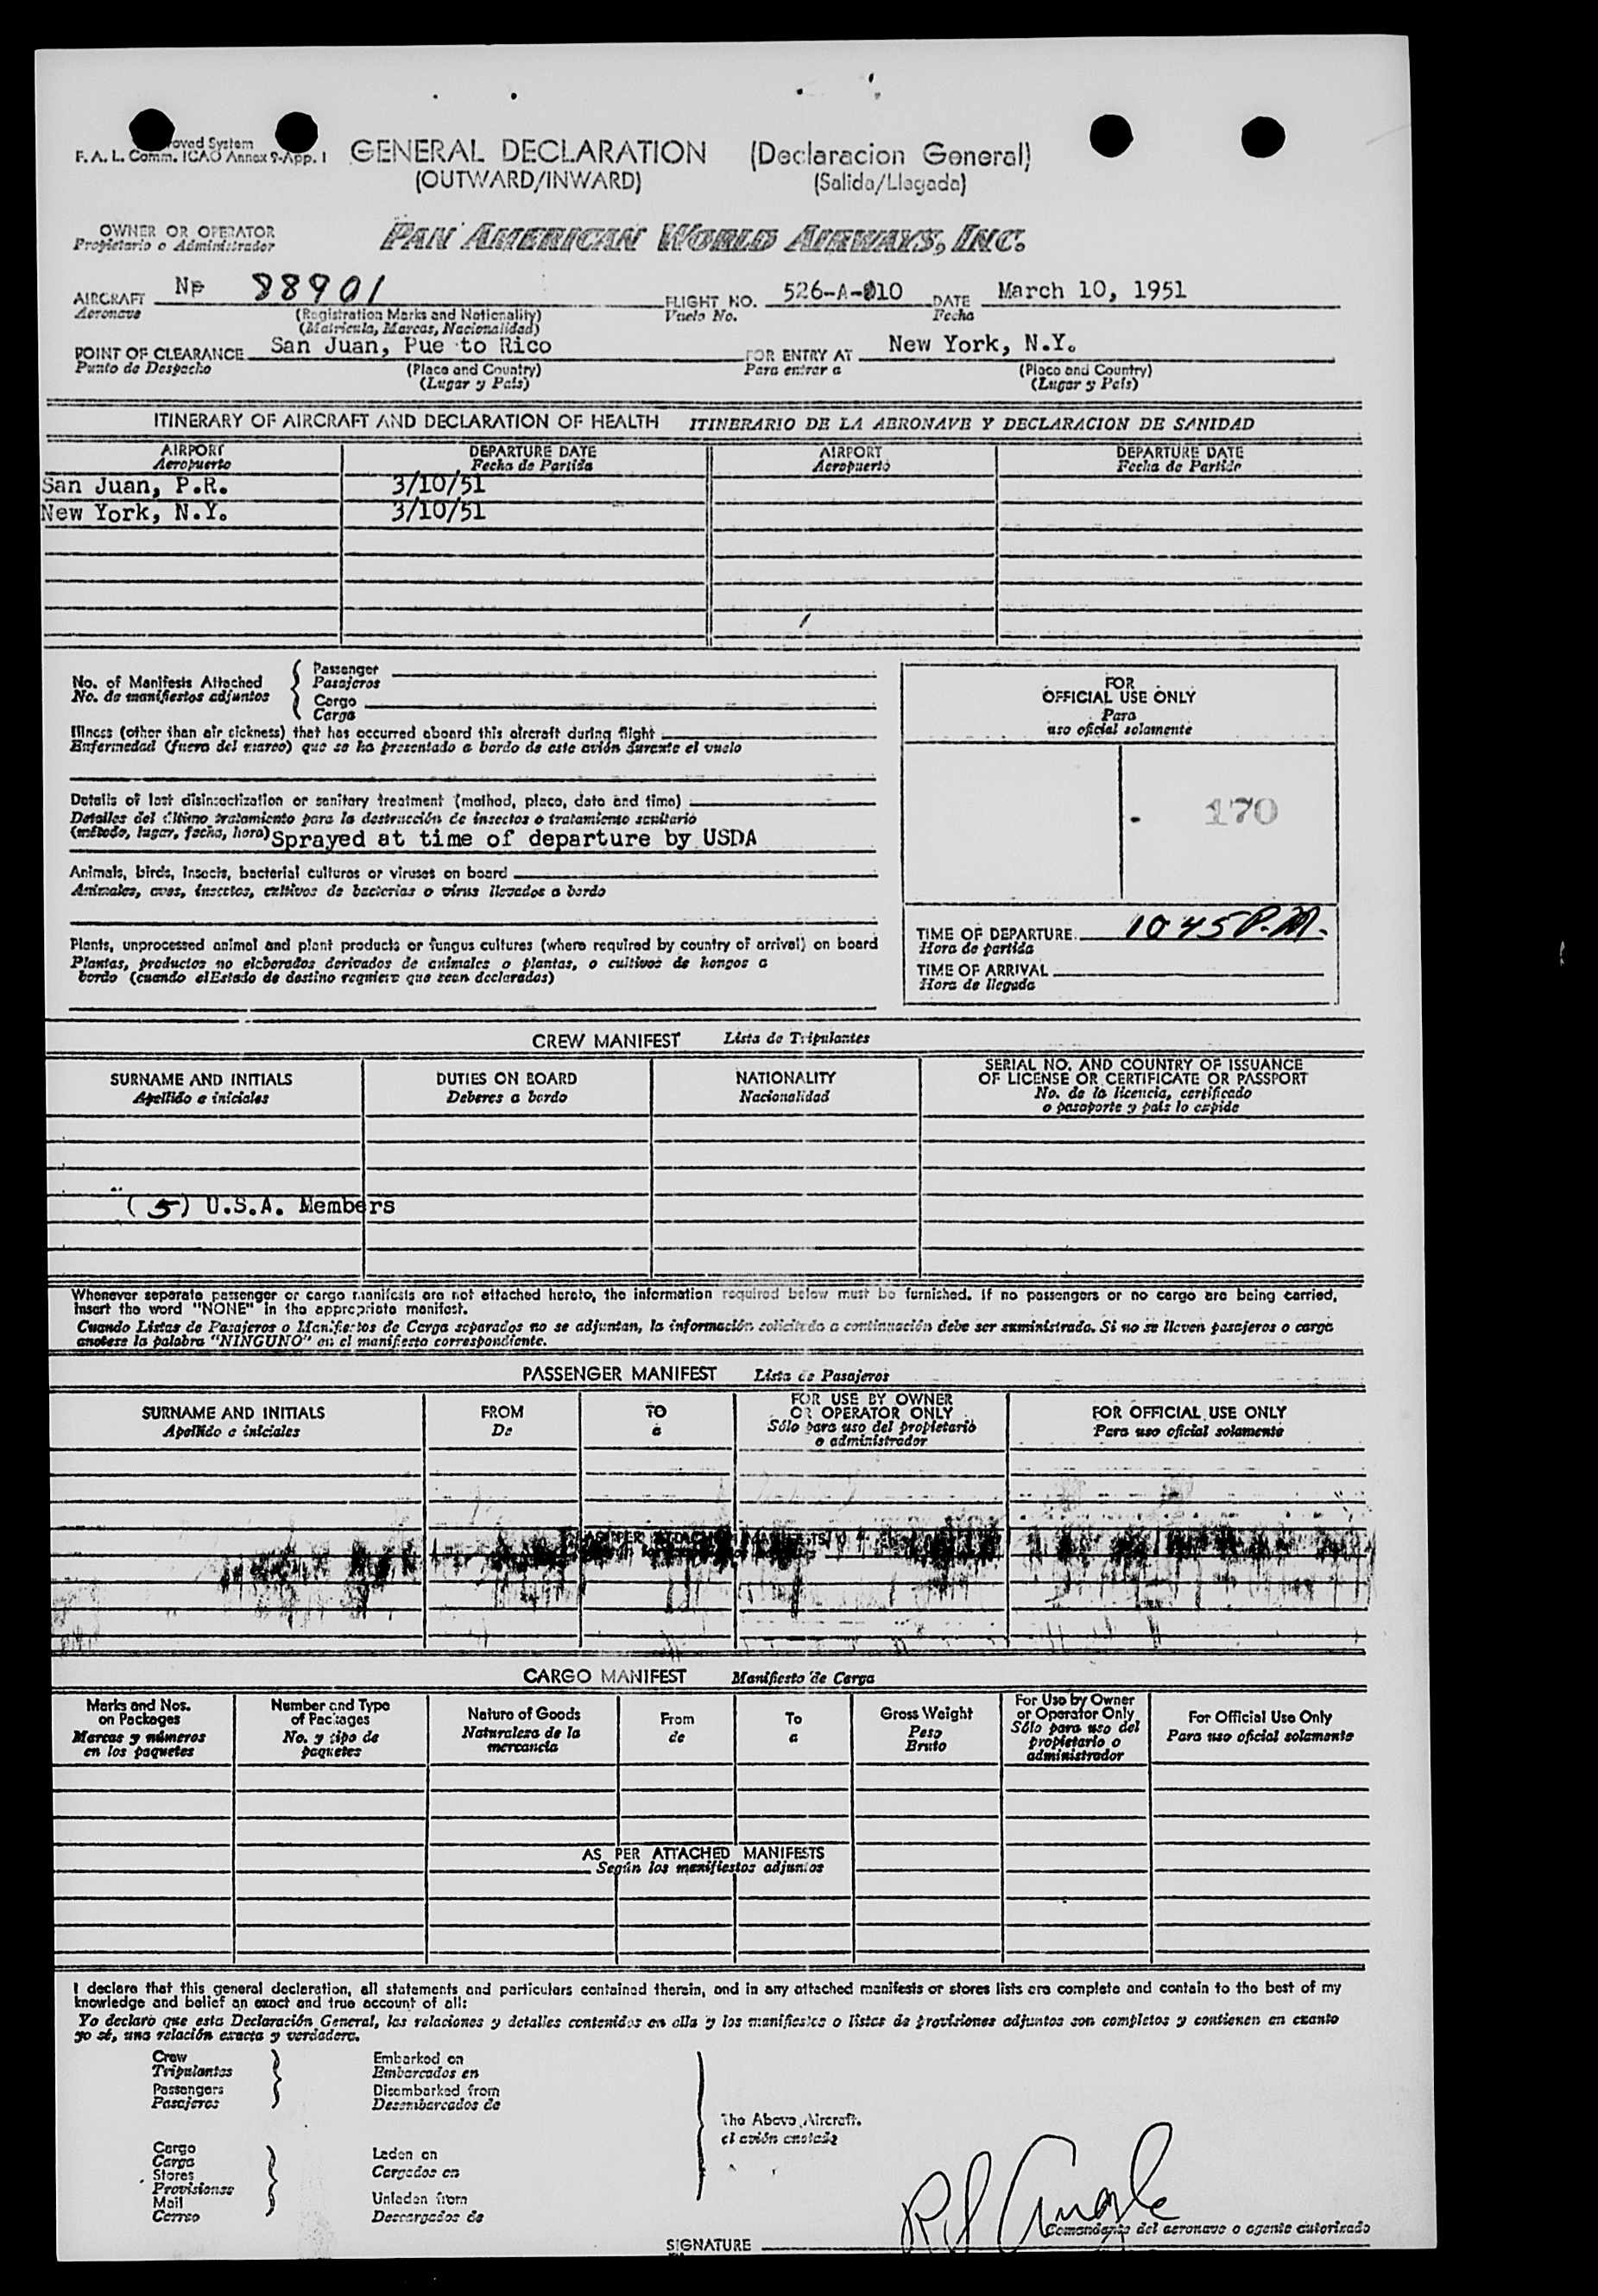 oved System
F. A. L. Comm. ICAO Annex 9-App. 1
GENERAL DECLARATION (Declaracion General)
(OUTWARD/INWARD) (Salida/Llegada)
OWNER OR OPERATOR
Propietario o Administrador
PAN AMERICAN WORLD AIRWAYS, INC.
AIRCRAFT Np 88901 FLIGHT NO. 526-A-010 DATE March 10, 1951
Aeronave (Registration Marks and Nationality) Vuelo No. Fecha
(Matricula, Marcas, Nacionalidad)
POINT OF CLEARANCE San Juan, Pue to Rico FOR ENTRY AT New York, N.Y.
Punto de Despacho (Place and Country) Para entrar a (Place and Country)
(Lugar y País) (Lugar y País)
ITINERARY OF AIRCRAFT AND DECLARATION OF HEALTH ITINERARIO DE LA AERONAVE Y DECLARACION DE SANIDAD
AIRPORT DEPARTURE DATE AIRPORT DEPARTURE DATE
Aeropuerto Fecha de Partida Aeropuerto Fecha de Partida
San Juan, P.R. 3/10/51
New York, N.Y. 3/10/51
No. of Manifests Attached
No. de manifiestos adjuntos
Passenger
Pasajeros
Cargo
Carga
Illness (other than air sickness) that has occurred aboard this aircraft during flight
Enfermedad (fuera del mareo) que se ha presentado a bordo de este avión durante el vuelo
Details of last disinsectization or sanitary treatment (method, place, date and time)
Detalles del último tratamiento para la destrucción de insectos o tratamiento sanitario
(método, lugar, fecha, hora) Sprayed at time of departure by USDA
Animals, birds, insects, bacterial cultures or viruses on board
Animales, aves, insectos, cultivos de bacterias o virus llevados a bordo
Plants, unprocessed animal and plant products or fungus cultures (where required by country of arrival) on board
Plantas, productos no elaborados derivados de animales o plantas, o cultivos de hongos a
bordo (cuando elEstado de destino requiere que sean declarados)
FOR
OFFICIAL USE ONLY
Para
uso oficial solamente
170
TIME OF DEPARTURE 1045 P.M.
Hora de partida
TIME OF ARRIVAL
Hora de llegada
CREW MANIFEST Lista de Tripulantes
SURNAME AND INITIALS
Apellido e iniciales
DUTIES ON BOARD
Deberes a bordo
NATIONALITY
Nacionalidad
SERIAL NO. AND COUNTRY OF ISSUANCE
OF LICENSE OR CERTIFICATE OR PASSPORT
No. de la licencia, certificado
o pasaporte y país lo expide
(5) U.S.A. Members
Whenever separate passenger or cargo manifests are not attached hereto, the information required below must be furnished. If no passengers or no cargo are being carried,
insert the word "NONE" in the appropriate manifest.
Cuando Listas de Pasajeros o Manifiestos de Carga separados no se adjuntan, la información solicitada a continuación debe ser suministrada. Si no se lleven pasajeros o carga
anotese la palabra "NINGUNO" en el manifiesto correspondiente.
PASSENGER MANIFEST Lista de Pasajeros
SURNAME AND INITIALS
Apellido e iniciales
FROM
De
TO
a
FOR USE BY OWNER
OR OPERATOR ONLY
Sólo para uso del propietario
o administrador
FOR OFFICIAL USE ONLY
Para uso oficial solamente
CARGO MANIFEST Manifiesto de Carga
Marks and Nos.
on Packages
Marcas y números
en los paquetes
Number and Type
of Packages
No. y tipo de
paquetes
Nature of Goods
Naturaleza de la
mercancía
From
de
To
a
Gross Weight
Peso
Bruto
For Use by Owner
or Operator Only
Sólo para uso del
propietario o
administrador
For Official Use Only
Para uso oficial solamente
AS PER ATTACHED MANIFESTS
Según los manifiestos adjuntos
I declare that this general declaration, all statements and particulars contained therein, and in any attached manifests or stores lists are complete and contain to the best of my
knowledge and belief an exact and true account of all:
Yo declaro que esta Declaración General, las relaciones y detalles contenidos en ella y los manifiestos o listas de provisiones adjuntos son completos y contienen en cuanto
yo sé, una relación exacta y verdadera.
Crew
Tripulantes
Passengers
Pasajeros
Embarked on
Embarcados en
Disembarked from
Desembarcados de
Cargo
Carga
Stores
Provisiones
Mail
Correo
Laden on
Cargados en
Unladen from
Descargados de
The Above Aircraft.
el avión anotado
Comandante del aeronave o agente autorizado
SIGNATURE